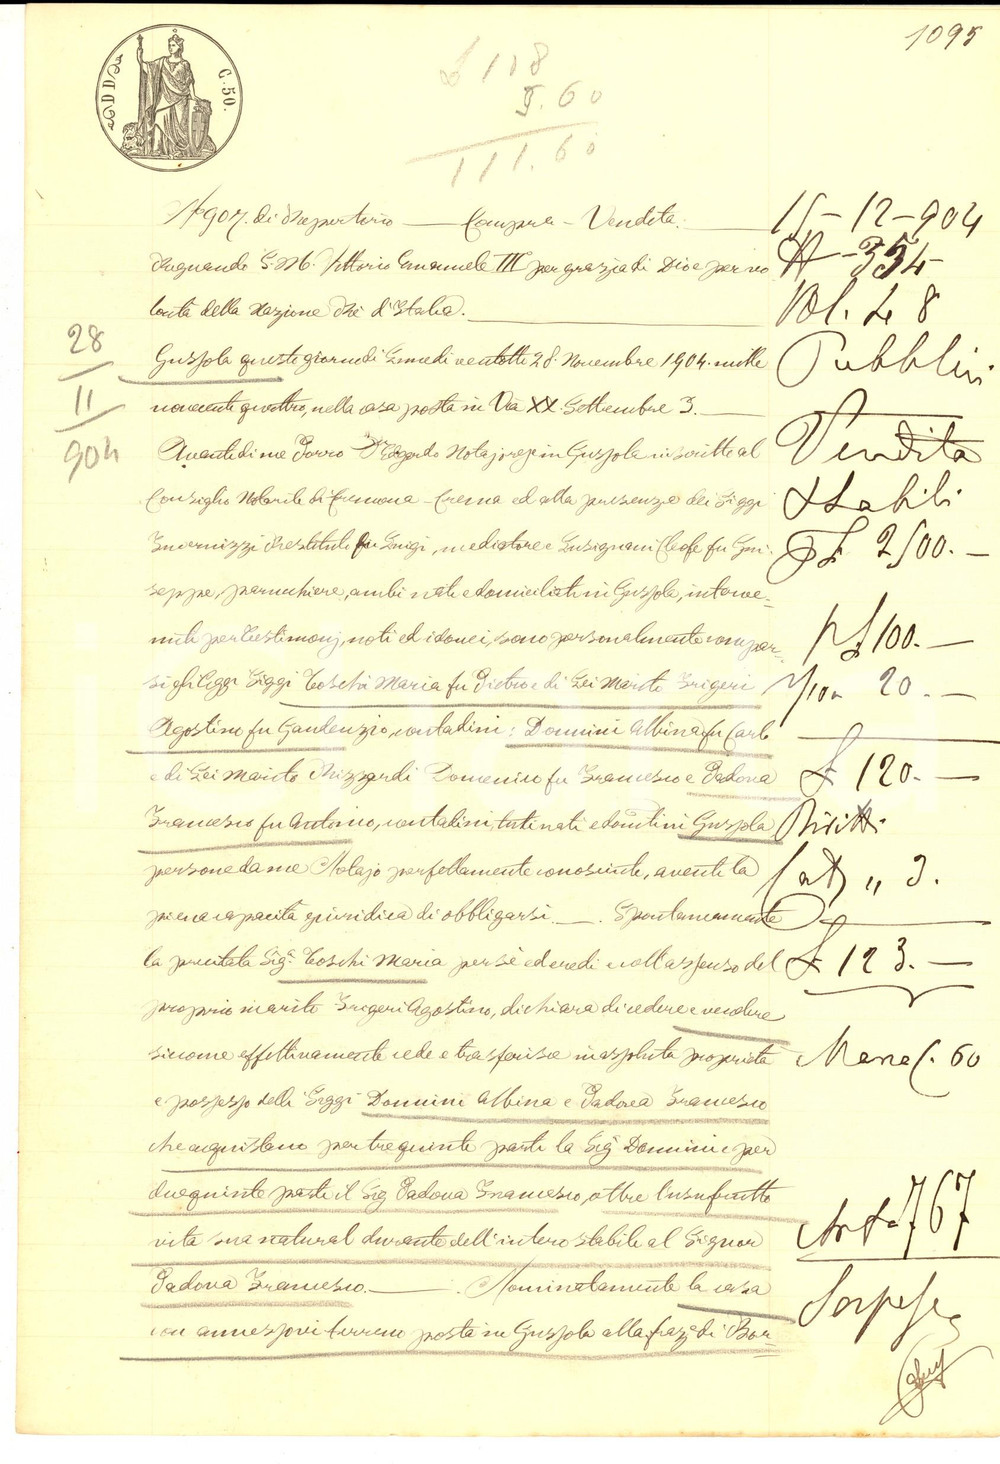 1095
C. 50.
£ 108
9.60
111.60
N° 907. di Repertorio — Compra - Vendita.
Regnando S. M. Vittorio Emanuele III per grazia di Dio e per vo
lontà della Nazione Re d'Italia.
Gussola questo giorno di Lunedì ventotto 28 Novembre 1904. mille
novecento quattro, nella casa posta in Via XX. Settembre 3.
Avanti di me Porro Edgardo Notajo res. in Gussola inscritto al
Consiglio Notarile di Cremona - Crema ed alla presenza dei Siggi
Invernizzi Restituto fu Luigi, mediatore e Lusignani Cleofe fu Giu-
seppe, parrucchiere, ambi nati e domiciliati in Gussola, interve=
nuti per testimonj, noti ed idonei, sono personalmente compar-
si gli Siggi Toschi Maria fu Pietro e di Lei Marito Frigeri
Agostino fu Gaudenzio, contadini; Donnini Albina fu Carlo
e di Lei Marito Rizzardi Domenico fu Francesco e Padova
Francesco fu Antonio, contadini, tutti nati e domti in Gussola
persone da me Notajo perfettamente conosciute, aventi la
piena capacità giuridica di obbligarsi. — . Spontaneamente
la prenotata Sig.a Toschi Maria per sè ed eredi e coll'assenso del
proprio marito Frigeri Agostino, dichiara di cedere e vendere
siccome effettivamente cede e trasferisce in assoluta proprietà
e possesso delli Siggi Donnini Albina e Padova Francesco
che acquistano per tre quinte parti la Sig.a Donnini e per
due quinte parti il Sig Padova Francesco, oltre l'usufrutto
vita sua natural durante dell'intero stabile al Signor
Padova Francesco. — . Nominatamente la casa
con annessovi terreno posta in Gussola alla fraz.e di Bor=
28
II
904
15-12-904
N- 354
Vol. 48
Pubblici
Vendita
Stabili
£ 2500. -
p £ 100. -
20. -
£ 120. -
Diritti
Cat „ 3.
£ 123. -
Manc. 60
Art° 767